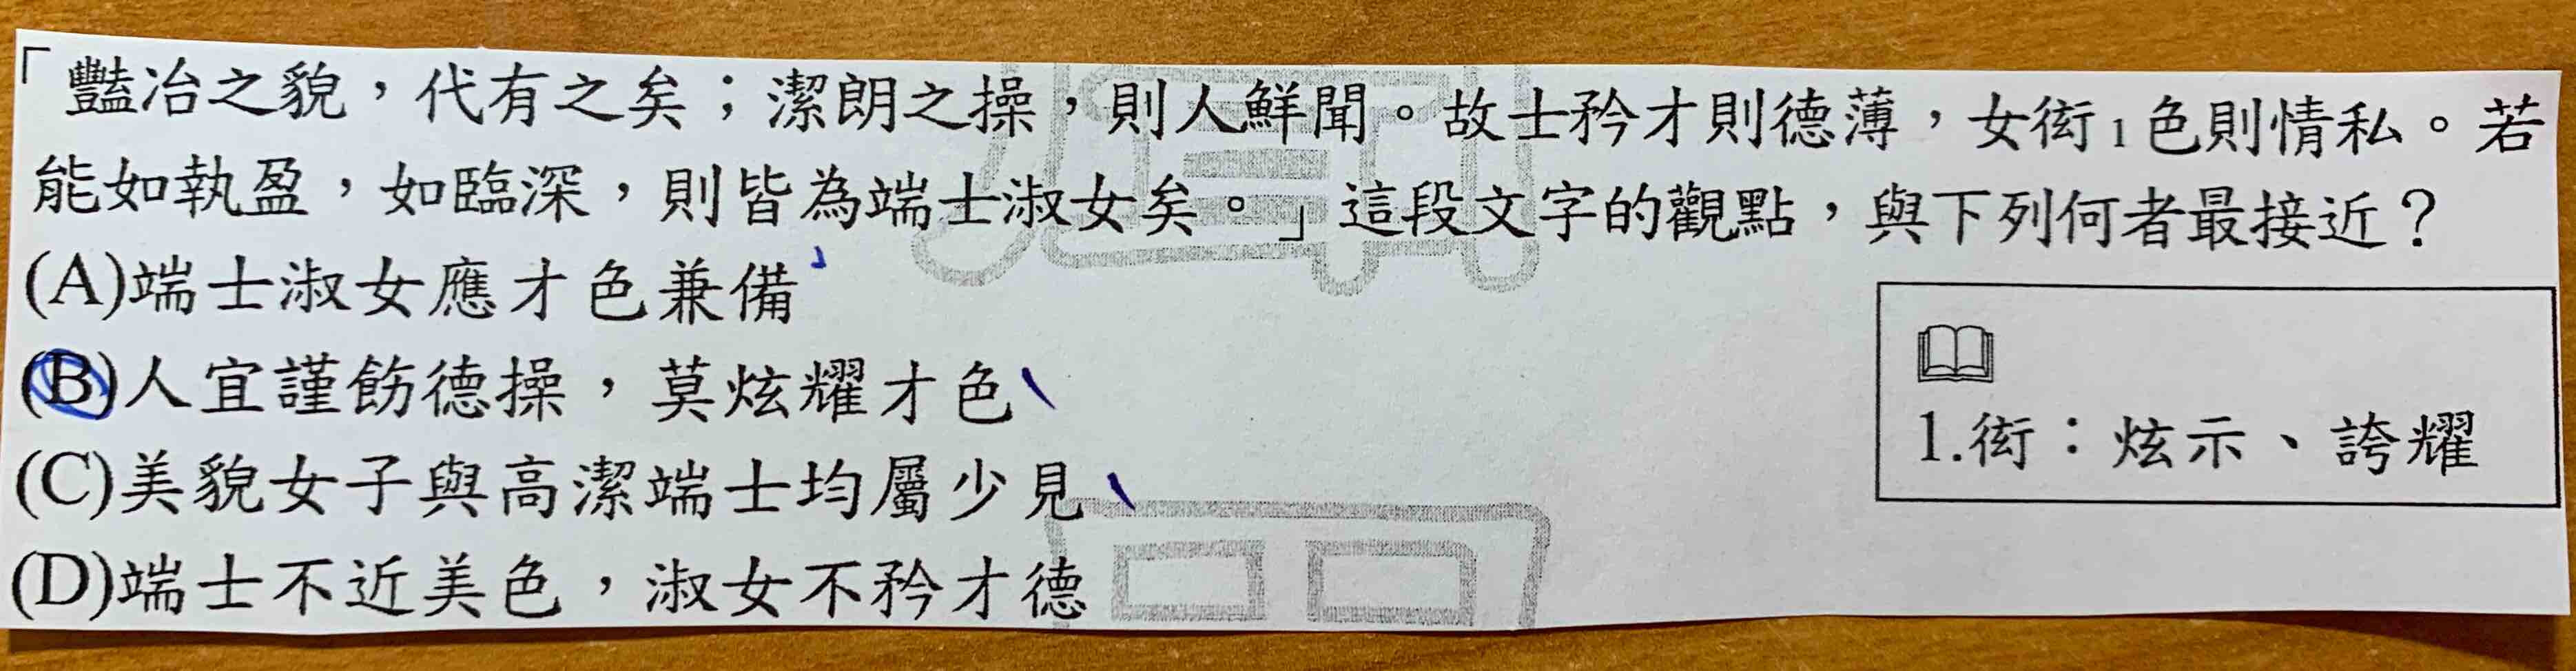 「豔冶之貌，代有之矣；潔朗之操，則人鮮聞。故士矜才則德薄，女衒1色則情私。若
能如執盈，如臨深，則皆為端士淑女矣。」這段文字的觀點，與下列何者最接近？
(A)端士淑女應才色兼備
(B)人宜謹飭德操，莫炫耀才色
(C)美貌女子與高潔端士均屬少見
(D)端士不近美色，淑女不矜才德
1.衒：炫示、誇耀